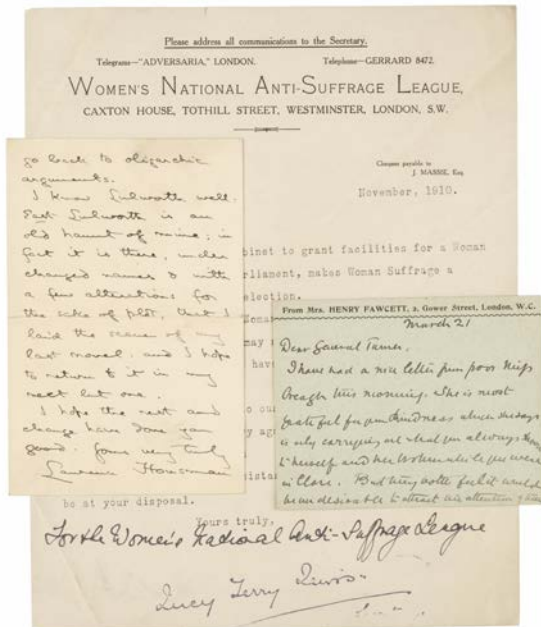 Please address all communications to the Secretary.
Telegrams—"ADVERSARIA," LONDON. Telephone—GERRARD 8472.
WOMEN'S NATIONAL ANTI-SUFFRAGE LEAGUE,
CAXTON HOUSE, TOTHILL STREET, WESTMINSTER, LONDON, S.W.
Cheques payable to
J. MASSIE, Esq
November, 1910.
binet to grant facilities for a Woman
rliament, makes Woman Suffrage a
election.
Woma
may
have
to ou
ry ag
istan
be at your disposal.
Yours truly,
For the Women's National Anti-Suffrage League
Lucy Terry Lewis
go back to oligarchic
arguments.
I know Lulworth well.
East Lulworth is an
old haunt of mine; in
fact it is there, under
changed names & with
a few alterations for
the sake of plot, that I
laid the scene of my
last novel, and I hope
to return to it in my
next but one.
I hope the rest and
change have done you
good. Yours very truly
Laurence Housman
From Mrs. HENRY FAWCETT, 2, Gower Street, London, W.C.
March 21
Dear General Turner,
I have had a nice letter from poor Miss
this morning. She is most
grateful for your kindness which she says
is only carrying out what you always
to himself and her Mother while you were
in Clare. But they both feel it would
be undesirable to attract attention